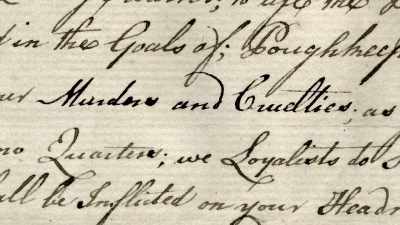 to use the
in the Goals of; Poughkeep
Murders and Cruelties; as
no Quarters; we Loyalists do
be Inflicted on your Head